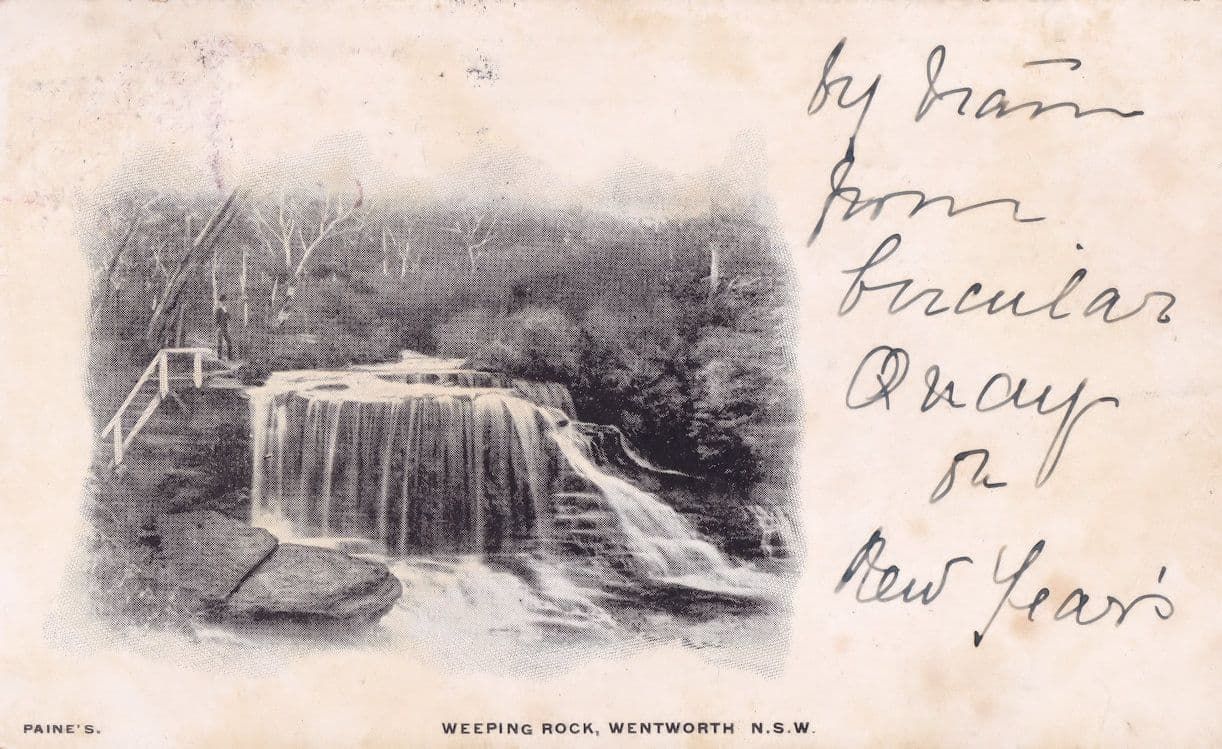 by tram
from
Circular
Quay
on
New Year's
PAINE'S.
WEEPING ROCK, WENTWORTH N.S.W.